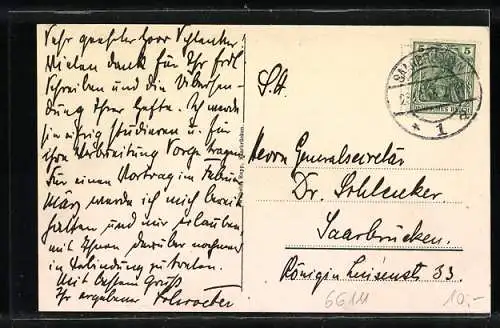 Sehr geehrter Herr Schlenker,
Vielen Dank für Ihr frdl
Schreiben und die Übersen-
dung Ihrer Hefte. Ich werde
sie eifrig studieren u. für
ihre Verbreitung Sorge tragen.
Für einen Vortrag im Februar
März werde ich mich bereit
halten und mir erlauben,
mit Ihnen darüber nochmal
in Verbindung zu treten.
Mit bestem Gruß
Ihr ergebener Schroeter
5 5
1
S.H.
Herrn Generalsekretär
Dr. Schlenker
Saarbrücken.
Königin Luisenstr 33.
6614
10,-